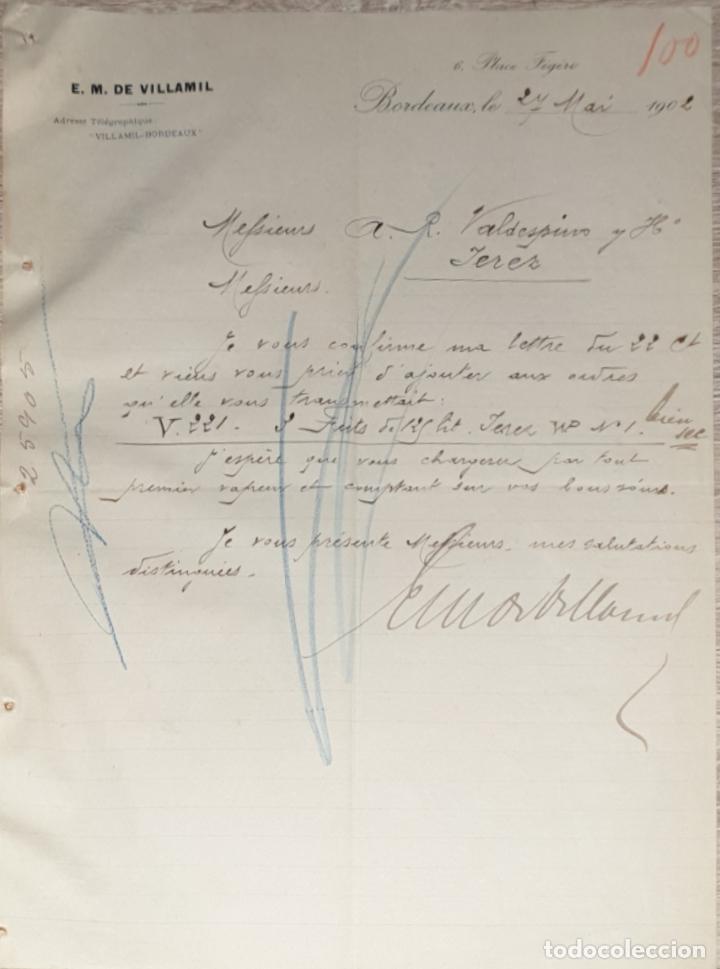 100
6, Place Fégère
E. M. DE VILLAMIL
Bordeaux, le 27 Mai 1902
Adresse Télégraphique:
"VILLAMIL-BORDEAUX"
Messieurs A. R. Valdespino y Hº
Jerez
Messieurs.
Je vous confirme ma lettre du 22 Ct
et viens vous prier d'ajouter aux ordres
qu'elle vous transmettait:
V. 221. 3 Futs de 125 lit. Jerez VP Nº 1. bien sec
J'espère que vous chargerez par tout
premier vapeur et comptant sur vos bons
Je vous présente Messieurs, mes salutations
distinguées.
EM de Villamil
25905
todocoleccion